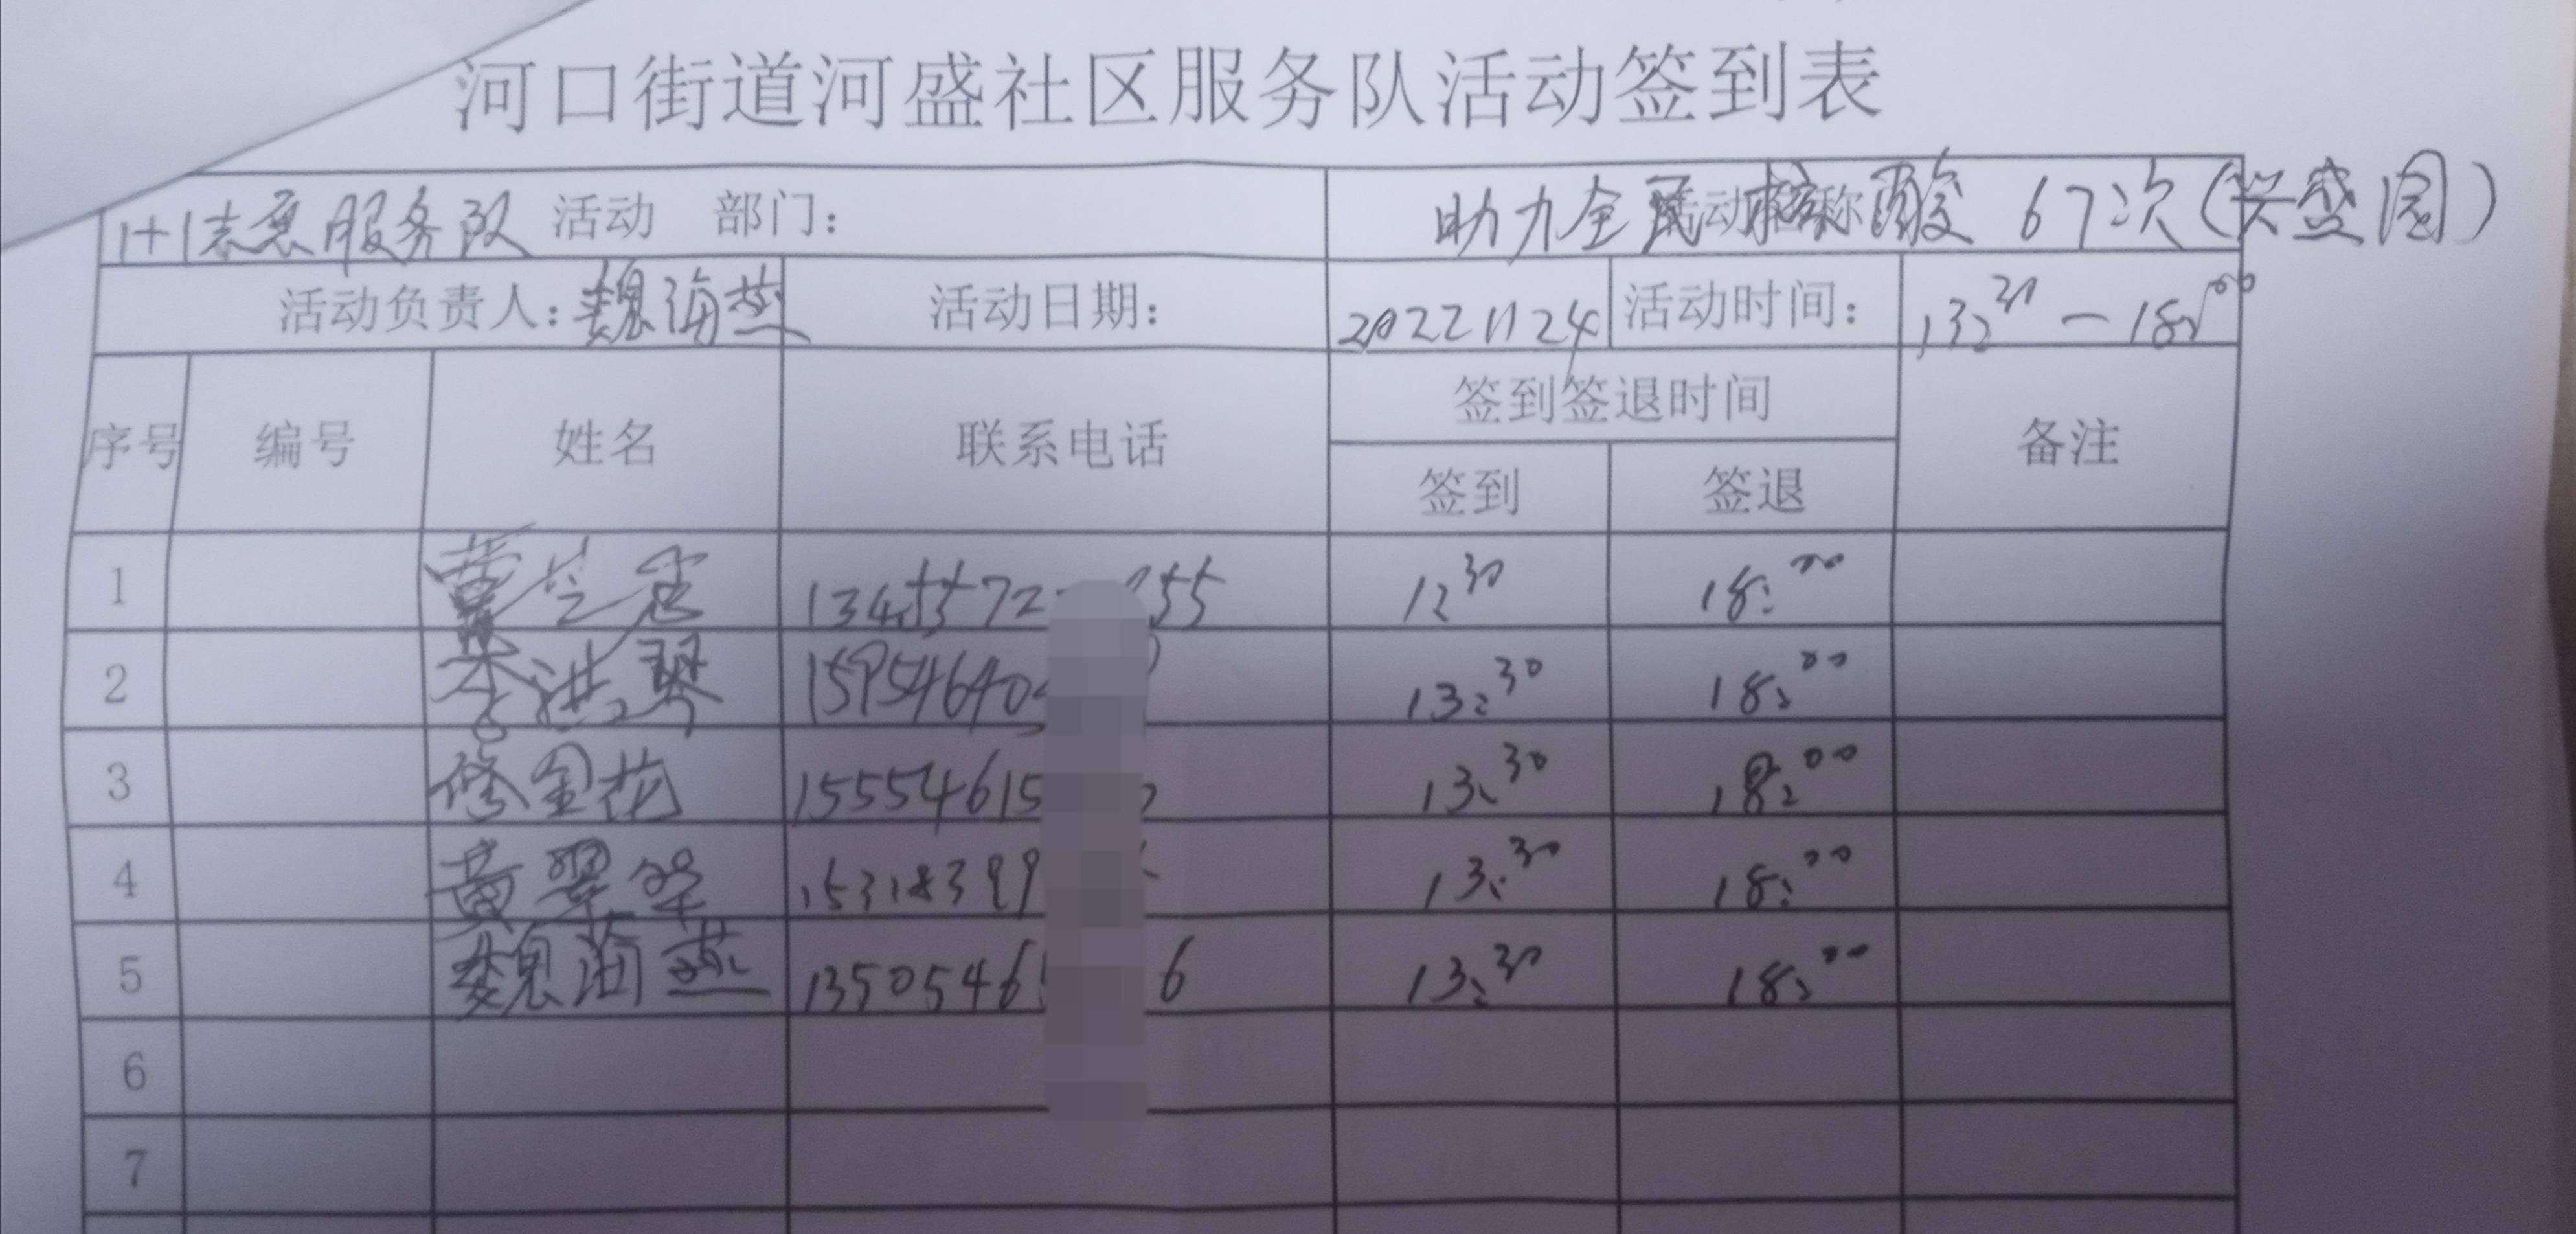 河口街道河盛社区服务队活动签到表
1+1志愿服务队 活动 部门： 助力全民核酸 67次(兴盛园)
活动负责人：魏海燕 活动日期： 20221124 活动时间： 13:30 — 18:00
序号 编号 姓名 联系电话 签到签退时间 备注
签到 签退
1 1345572 55 12 30 18:00
2 李洪琴 159546404 13:30 18:00
3 修金花 155554615 13:30 18:00
4 黄翠华 15318399 13:30 18:00
5 魏海燕 13505465 6 13:30 18:00
6
7